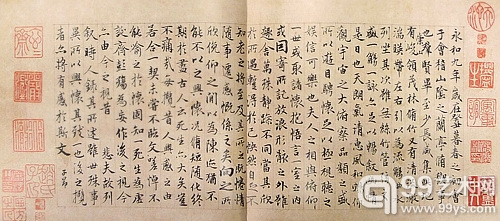 永和九年歲在癸丑暮春之初會
于會稽山陰之蘭亭脩禊事
也羣賢畢至少長咸集此地
有峻領茂林脩竹又有清流激
湍暎帶左右引以為流觴曲水
列坐其次雖無絲竹管弦之
盛一觴一詠亦足以暢敘幽情
是日也天朗氣清惠風和暢仰
觀宇宙之大俯察品類之盛
所以遊目騁懷足以極視聽之
娛信可樂也夫人之相與俯仰
一世或取諸懷抱悟言一室之內
或因寄所託放浪形骸之外雖
趣舍萬殊靜躁不同當其欣
於所遇暫得於己快然自足不
知老之將至及其所之既惓情
隨事遷感慨係之矣向之所
欣俛仰之間以為陳迹猶不
能不以之興懷況脩短隨化終
期於盡古人云死生亦大矣豈
不痛哉每攬昔人興感之由
若合一契未嘗不臨文嗟悼不
能喻之於懷固知一死生為虛
誕齊彭殤為妄作後之視今
亦由今之視昔悲夫故列
敘時人錄其所述雖世殊事
異所以興懷其致一也後之攬
者亦將有感於斯文
子昂
99艺术网